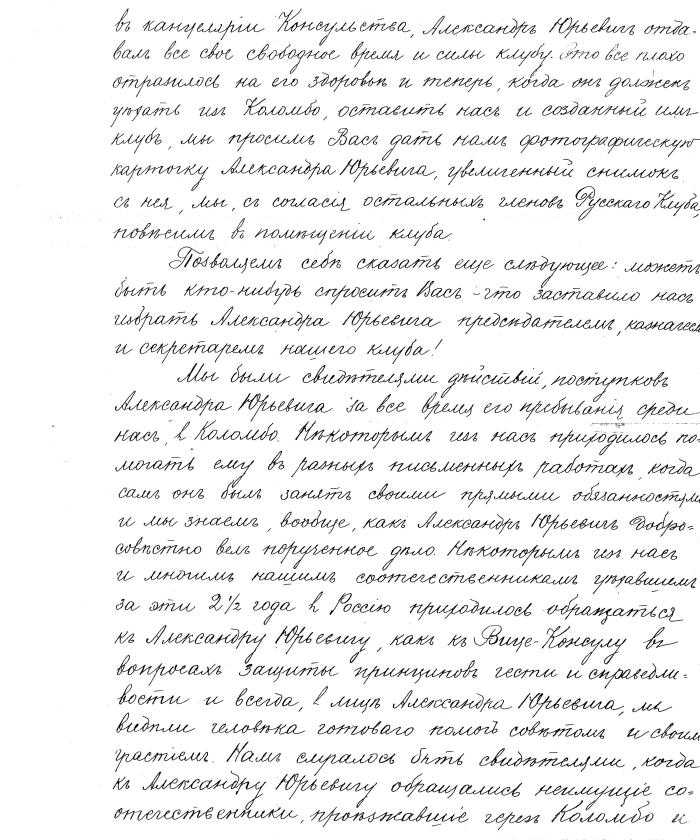 въ канцеляріи Консульства, Александръ Юрьевичъ отда-
валъ все свое свободное время и силы клубу. Это все плохо
отразилось на его здоровьи и теперь, когда онъ долженъ
уѣхать изъ Коломбо, оставить насъ и созданный имъ
клубъ, мы просимъ Васъ дать намъ фотографическую
карточку Александра Юрьевича, увеличенный снимокъ
съ нея, мы, съ согласія остальныхъ членовъ Русскаго Клуба,
повѣсимъ въ помѣщеніи клуба.
Позволяемъ себѣ сказать еще слѣдующее: можетъ
быть кто-нибудь спроситъ Васъ - что заставило насъ
избрать Александра Юрьевича предсѣдателемъ, казначеемъ
и секретаремъ нашего клуба!
Мы были свидѣтелями дѣйствій, поступковъ
Александра Юрьевича за все время его пребыванія среди
насъ, въ Коломбо. Нѣкоторымъ изъ насъ приходилось по-
могать ему въ разныхъ письменныхъ работахъ, когда
самъ онъ былъ занятъ своими прямыми обязанностями
и мы знаемъ, вообще, какъ Александръ Юрьевичъ добро-
совѣстно велъ порученное дѣло. Нѣкоторымъ изъ насъ
и многимъ нашимъ соотечественникамъ уѣхавшимъ
за эти 2½ года въ Россію приходилось обращаться
къ Александру Юрьевичу, какъ къ Вице-Консулу въ
вопросахъ защиты принциповъ чести и справедли-
вости и всегда, въ лицѣ Александра Юрьевича, мы
видѣли человѣка готоваго помочь совѣтомъ и своимъ
участіемъ. Намъ случалось быть свидѣтелями, когда
къ Александру Юрьевичу обращались неимущіе со-
отечественники, проѣзжавшіе черезъ Коломбо и